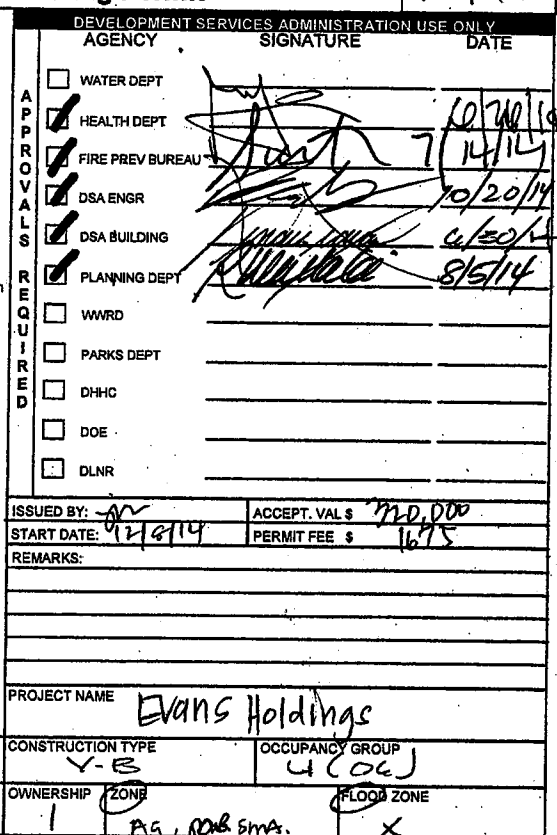 DEVELOPMENT SERVICES ADMINISTRATION USE ONLY
AGENCY SIGNATURE DATE
APPROVALS REQUIRED
WATER DEPT
HEALTH DEPT
FIRE PREV BUREAU 7/14/14
DSA ENGR 10/20/14
DSA BUILDING
PLANNING DEPT 8/5/14
WWRD
PARKS DEPT
DHHC
DOE
DLNR
ISSUED BY: ACCEPT. VAL $
START DATE: 12/8/14 PERMIT FEE $ 1675
REMARKS:
PROJECT NAME Evans Holdings
CONSTRUCTION TYPE OCCUPANCY GROUP
V-B
OWNERSHIP ZONE FLOOD ZONE
1 AG, SMA. X